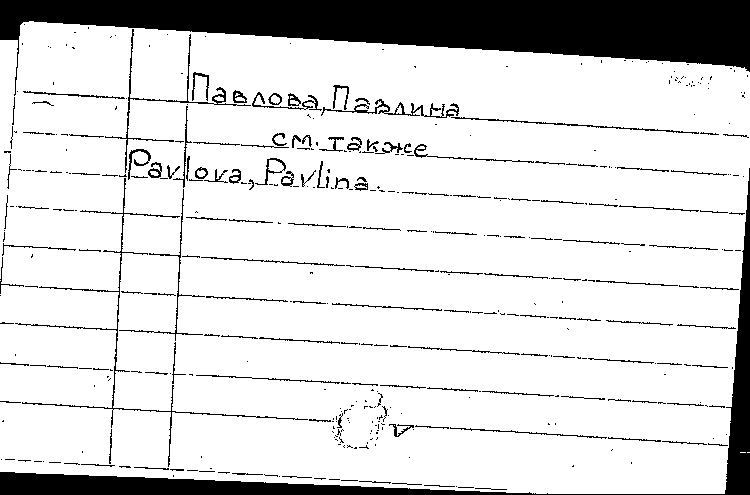 Павлова, Павлина
см. также
Pavlova, Pavlina.